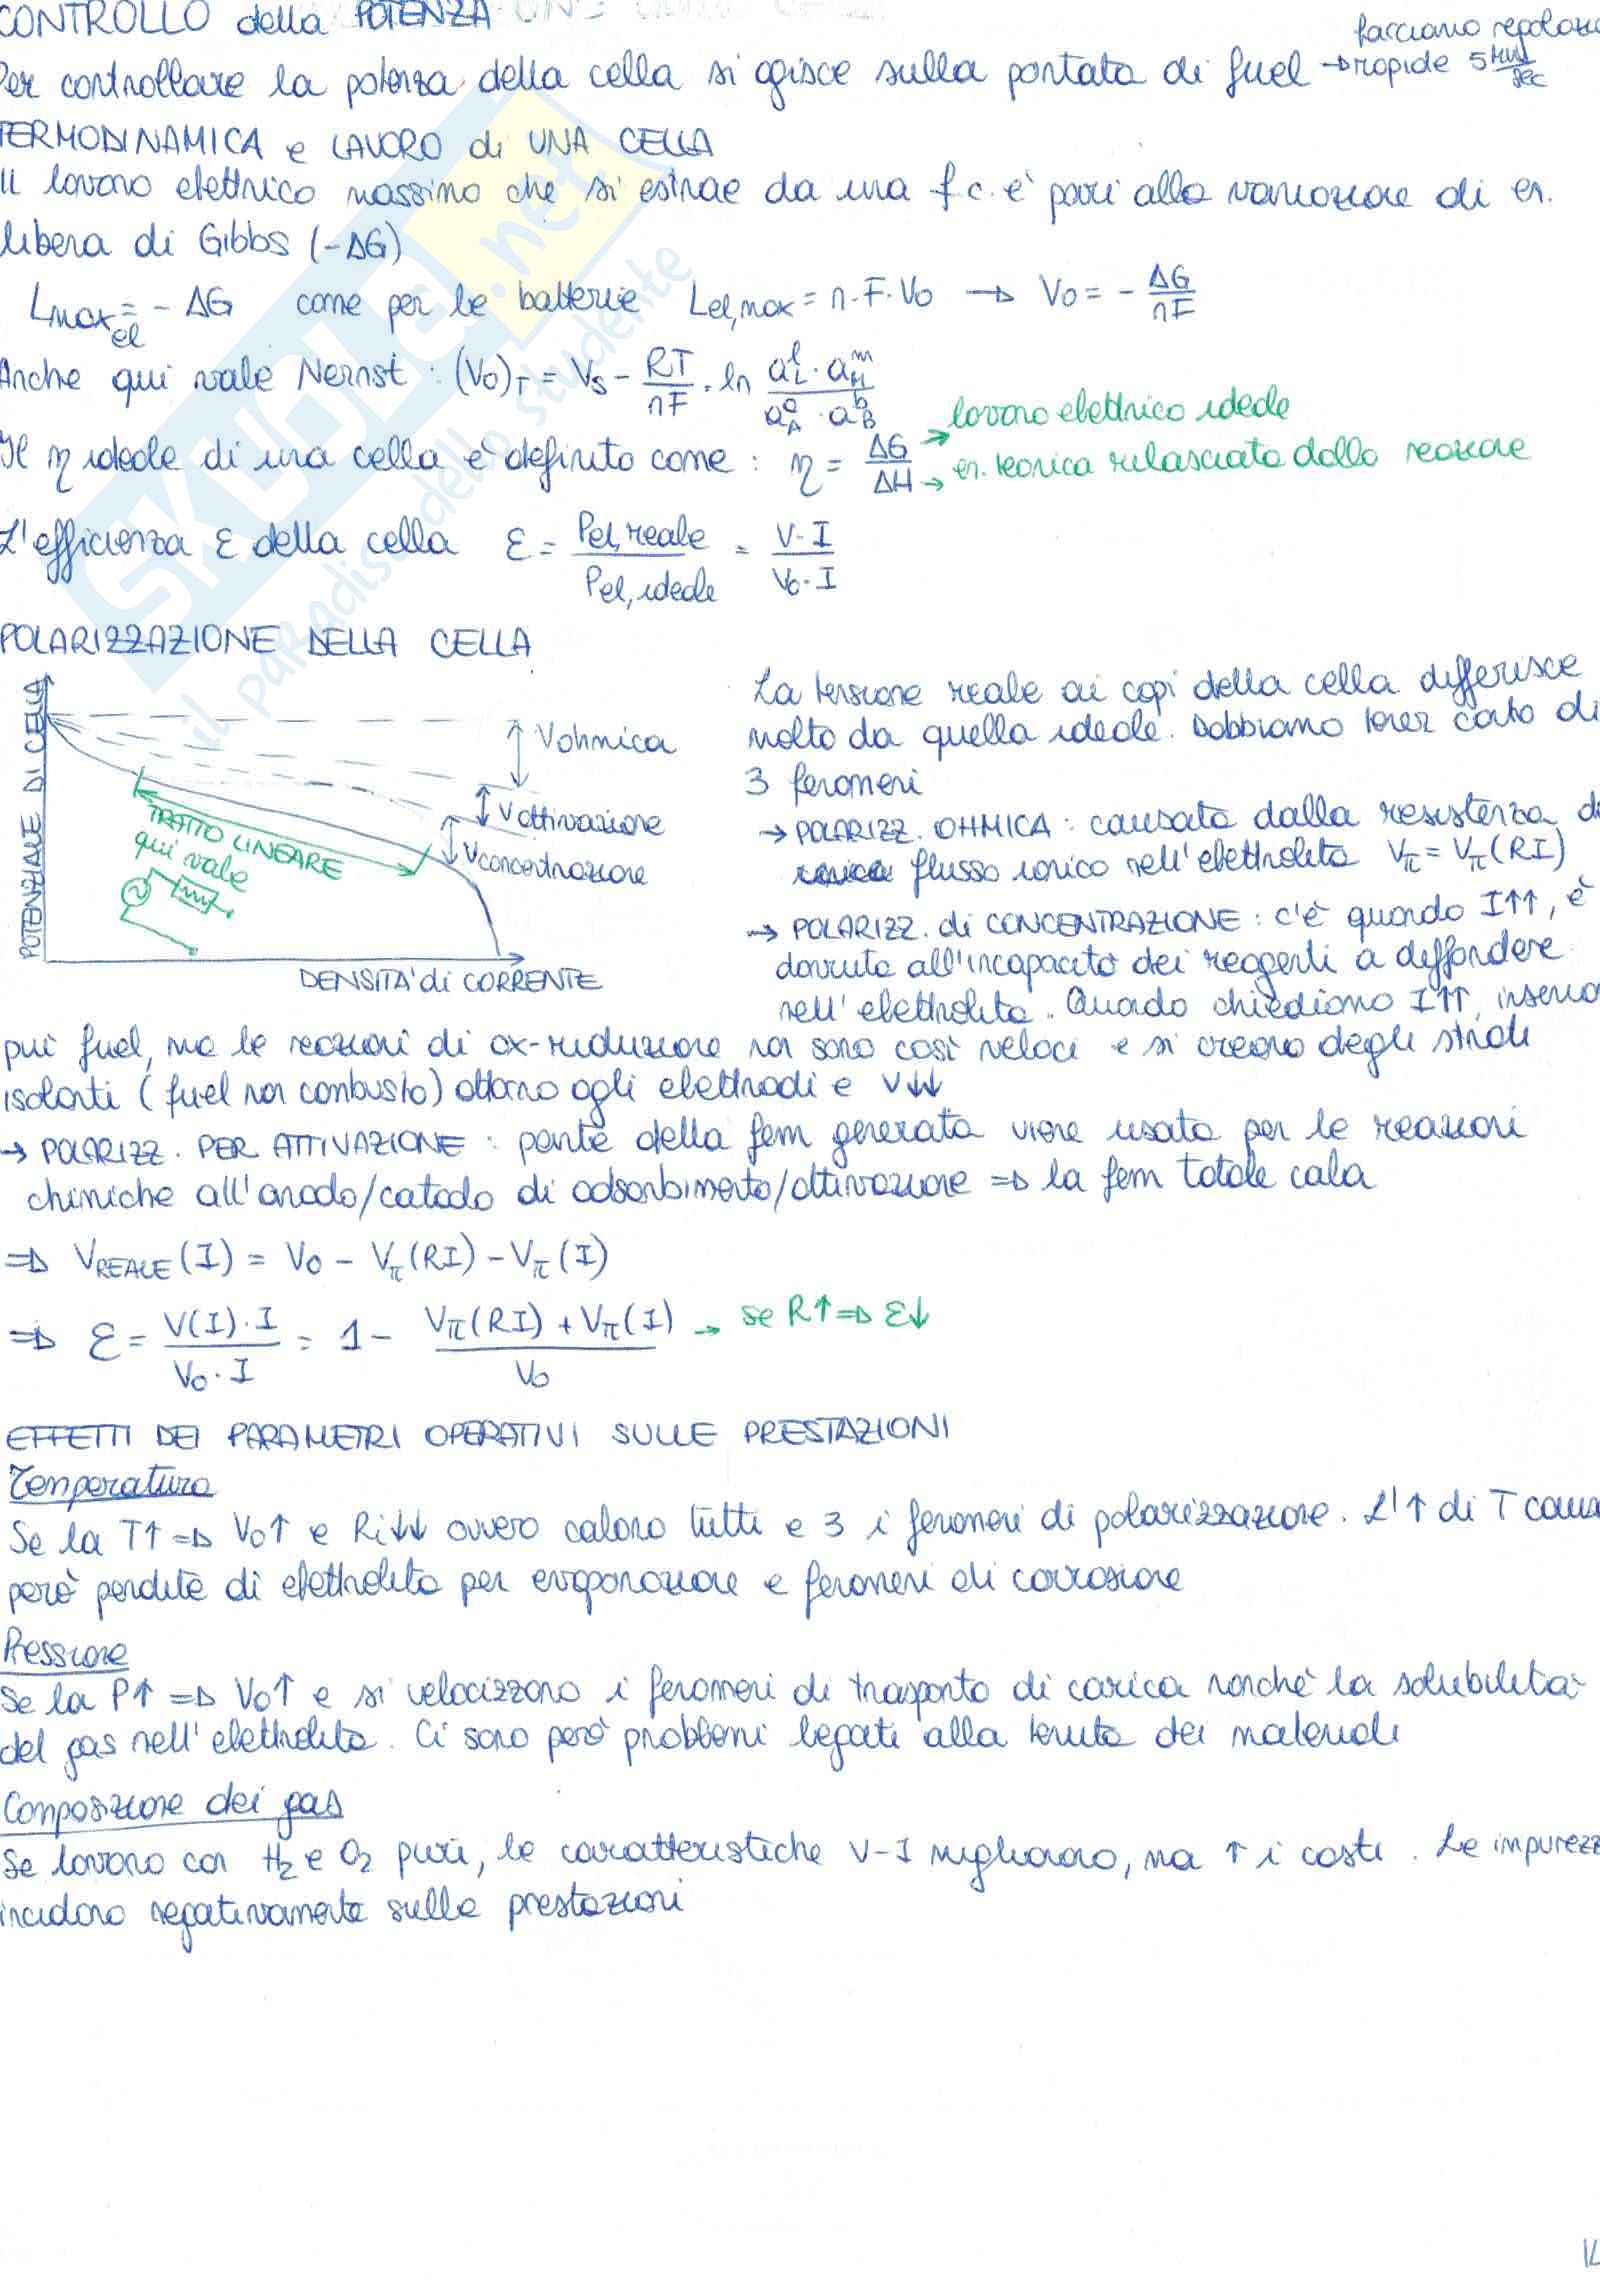 CONTROLLO della POTENZA
facciamo regolazi
Per controllare la potenza della cella si agisce sulla portata di fuel → rapide 5 kW/sec
TERMODINAMICA e LAVORO di UNA CELLA
Il lavoro elettrico massimo che si estrae da una f.c. è pari alla variazione di en.
libera di Gibbs (-ΔG)
Lmax el = - ΔG come per le batterie Lel,max = n·F·V0 → V0 = - ΔG/nF
Anche qui vale Nernst: (V0)T = Vs - RT/nF · ln (aL^l · aM^m)/(aA^a · aB^b)
→ lavoro elettrico ideale
Il η ideale di una cella è definito come: η = ΔG/ΔH → en. teorica rilasciata dalla reazione
L'efficienza ε della cella ε = Pel,reale/Pel,ideale = V·I/V0·I
POLARIZZAZIONE DELLA CELLA
POTENZIALE DI CELLA
Vohmica
Vattivazione
Vconcentrazione
TRATTO LINEARE
qui vale
DENSITA' di CORRENTE
La tensione reale ai capi della cella differisce
molto da quella ideale. Dobbiamo tener conto di
3 fenomeni
→ POLARIZZ. OHMICA: causata dalla resistenza di
flusso ionico nell'elettrolita Vπ = Vπ(RI)
→ POLARIZZ. di CONCENTRAZIONE: c'è quando I↑↑, è
dovuta all'incapacità dei reagenti a diffondere
nell'elettrolita. Quando chiediamo I↑↑, inseriamo
più fuel, ma le reazioni di ox-riduzione non sono così veloci e si creano degli strati
isolanti (fuel non combusto) attorno agli elettrodi e V↓↓
→ POLARIZZ. PER ATTIVAZIONE: parte della fem generata viene usata per le reazioni
chimiche all'anodo/catodo di adsorbimento/attivazione => la fem totale cala
=> VREALE(I) = V0 - Vπ(RI) - Vπ(I)
=> ε = V(I)·I/V0·I = 1 - (Vπ(RI) + Vπ(I))/V0 → se R↑ => ε↓
EFFETTI DEI PARAMETRI OPERATIVI SULLE PRESTAZIONI
Temperatura
Se la T↑ => V0↑ e Ri↓↓ ovvero calano tutti e 3 i fenomeni di polarizzazione. L'↑ di T causa
però perdite di elettrolita per evaporazione e fenomeni di corrosione
Pressione
Se la P↑ => V0↑ e si velocizzano i fenomeni di trasporto di carica nonché la solubilità
del gas nell'elettrolita. Ci sono però problemi legati alla tenuta dei materiali
Composizione dei gas
Se lavoro con H2 e O2 puri, le caratteristiche V-I migliorano, ma ↑ i costi. Le impurezz
incidono negativamente sulle prestazioni
SKUOLA.net
il paradiso dello studente